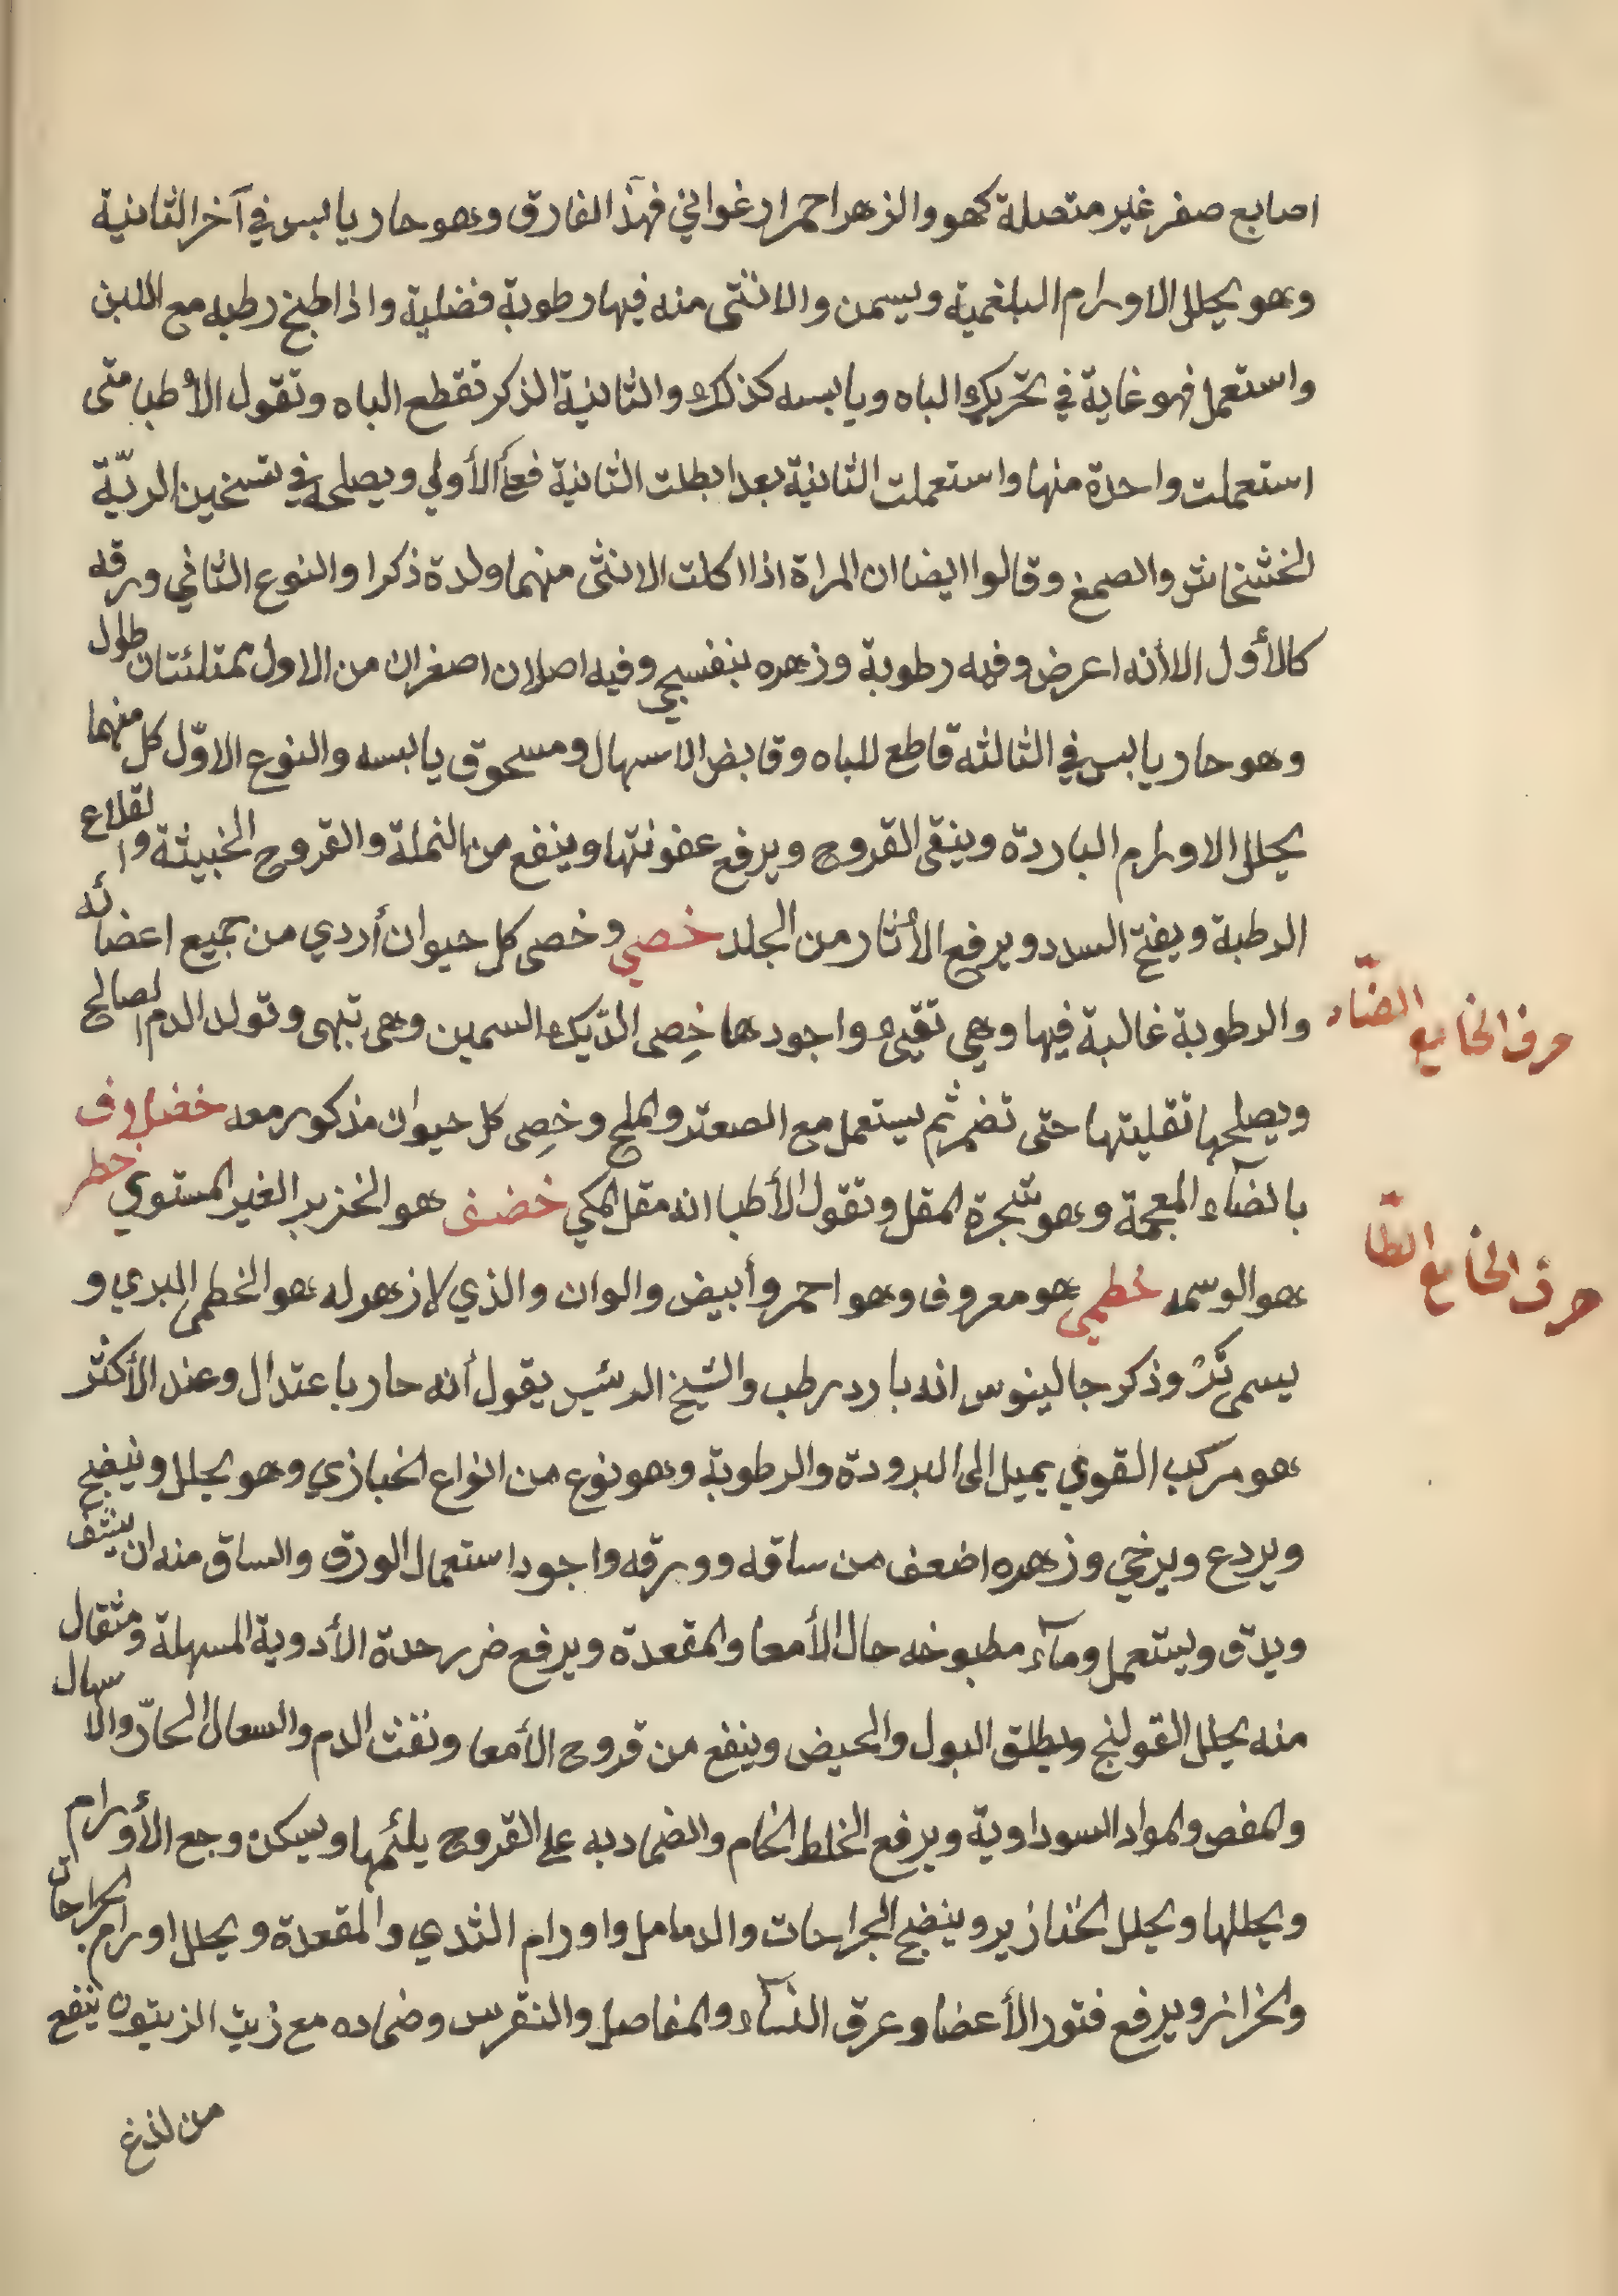 اصابع صفر غير متصلة كهو والزهر احمر ارغواني فهذا الفارق وهو حار يابس في آخر الثانية
وهو يحلل الاورام البلغمية ويسمن والانثى منه فيها رطوبة فضلية واذا طبخ رطبه مع اللبن
واستعمل فهو غاية في تحريك الباه ويابسه كذلك والثانية الذكر تقطع الباه وتقول الأطبا متى
استعملت واحدة منها واستعملت الثانية بعد ابطلت الثانية فعل الأولي ويصلحه في تسخين الريّة
الخشخاش والصمغ وقالوا ايضا ان المراة اذا اكلت الانثى منهما ولدة ذكرا والنوع الثاني ورقه
كالأول الا أنه اعرض وفيه رطوبة وزهره بنفسجي وفيه اصلان اصغران من الاول ممتلئتان طول
وهو حار يابس في الثالثه قاطع للباه وقابض الاسهال ومسحوق يابسه والنوع الاوّل كل منهما
يحلل الاورام الباردة وينقى القروح ويرفع عفونتها وينفع من النملة والقروح الخبيثة والقلاع
الرطبة ويفتح السدد ويرفع الأثار من الجلد خصي وخصى كل حيوان أردي من جميع اعضائه
والرطوبة غالبة فيها وهي تقيئ واجودها خِصى الدّيك السمين وهى تبهى وتولد الدم الصالح
حرف الخا مع الضّاء
ويصلحها تقليتها حتى تضمر ثم يستعمل مع الصعتر والملح وخِصى كل حيوان مذكور معه خضلاف
بالضآء المعجمة وهو شجرة المقل وتقول الأطبا انه مقل المكي خضف هو الخزبر الغير المستوي خطر
حرف الخا مع الطّا
هو الوسمه خطمي هو معروف وهو احمر وأبيض والوان والذي لا زهر له هو الخطمى البري و
يسمى وذكر جالينوس انه بارد رطب والشيخ الرئيس يقول أنه حار باعتدال وعند الأكثر
هو مركب القوي يميل الى البرودة والرطوبة وهو نوع من انواع الخبازي وهو يحلل وينضج
ويردع ويرخي وزهره اضعف من ساقه وورقه واجود استعمال الورق والساق منه ان ينشف
ويدق ويستعمل ومآء مطبوخه حال الأمعا والمقعدة ويرفع ضرر حدة الأدوية المسهلة ومثقال
منه يحلل القولنج ويطلق البول والحيض وينفع من قروح الأمعا ونفث الدم والسعال الحارّ والاسهال
والمغص والمواد السوداوية ويرفع الخلط الخام والضماد به على القروح يلئمها ويسكن وجع الأورام
ويحللها ويحلل الخنازير وينضج الجراحات والدمامل واورام الثدي والمقعدة ويحلل اورام الجراحات
والخزانر ويرفع فتور الأعضا وعرق النسآء والمفاصل والنقرس وضماده مع زيت الزيتون ينفع
من لذغ